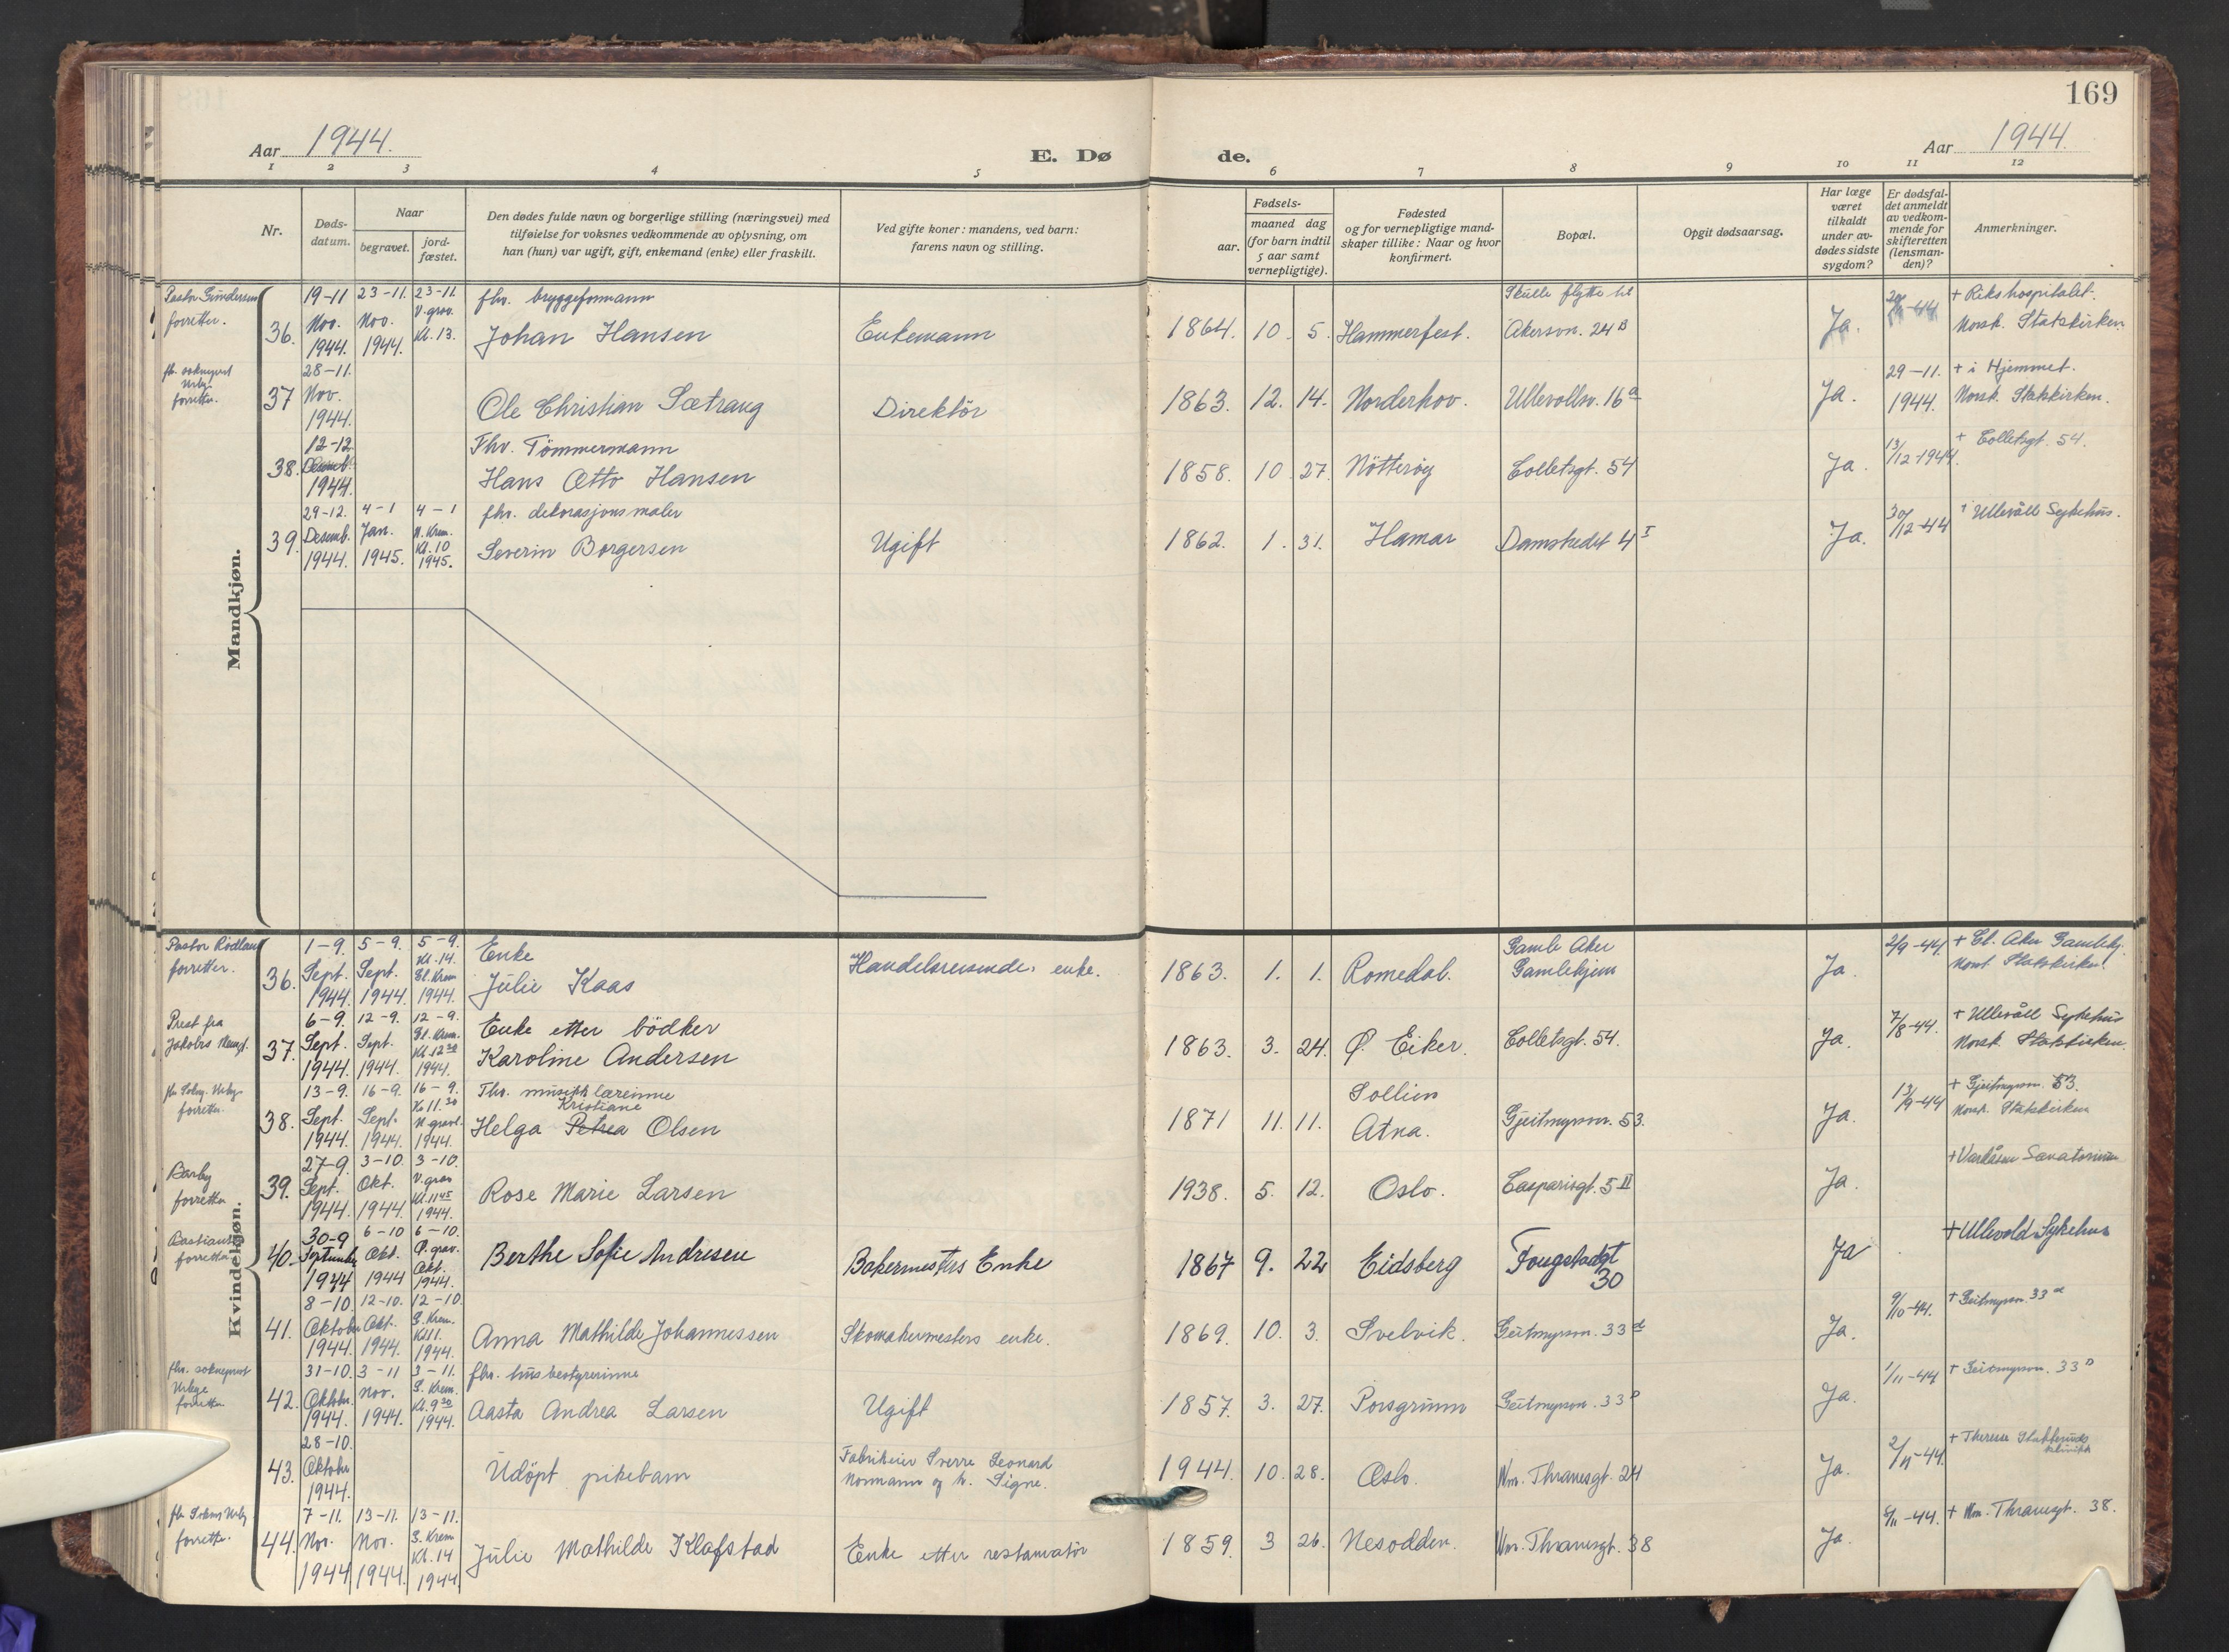 169
Aar 1944.
E. Dø
de.
Aar 1944.
1 2 3 4 5 6 7 8 9 10 11 12
Nr.
Døds-
datum.
Naar
begravet.
jord-
fæstet.
Den dødes fulde navn og borgerlige stilling (næringsvei) med
tilføielse for voksnes vedkommende av oplysning, om
han (hun) var ugift, gift, enkemand (enke) eller fraskilt.
Ved gifte koner: mandens, ved barn:
farens navn og stilling.
Fødsels-
aar.
maaned dag
(for barn indtil
5 aar samt
vernepligtige).
Fødested
og for vernepligtige mand-
skaper tillike: Naar og hvor
konfirmert.
Bopæl.
Opgit dødsaarsag.
Har læge
været
tilkaldt
under av-
dødes sidste
sygdom?
Er dødsfal-
det anmeldt
av vedkom-
mende for
skifteretten
(lensman-
den)?
Anmerkninger.
Mandkjøn.
Pastor Gundersen 19-11 23-11. 23-11. fhv. bryggeformann Skulle flytte til + Rikshospitalet.
forretter. 36. Nov. Nov. V. grav. Johan Hansen Enkemann 1864. 10. 5. Hammerfest. Akersvn. 24 B Ja. Norsk. Statskirken
1944. 1944. Kl. 13.
28-11. 29-11. + i Hjemmet.
forretter. 37 Nov. Ole Christian Sætrang Direktör 1863. 12. 14. Norderhov. Ullevollsv. 16 a Ja. 1944. Norsk. Statskirken.
1944.
12-12. Fhv. Tömmermann 13/12-1944. + Colletsgt. 54.
38. Desemb. Hans Otto Hansen 1858. 10. 27. Nötteröy Colletsgt. 54 Ja.
1944.
29-12. 4-1 4-1 fhv. dekorasjonsmaler 30/12-44 + Ullevåll Sykehus.
39. Desemb. Jan. N. Krem. Severin Borgersen Ugift 1862. 1. 31. Hamar Damstredet 4 I Ja.
1944. 1945. Kl. 10
1945.
Kvindekjøn.
Pastor Rödland 1-9. 5-9. 5-9. Enke Gamle Aker 2/9-44. + Gl. Aker Gamlehj.
forretter. 36. Sept. Sept. Kl. 14. Julie Kaas Handelsreisendes enke. 1863. 1. 1. Romedal. Gamlehjem Ja. Norsk. Statskirken.
1944. 1944. Gl. Krem 1944.
Prest fra 6-9. 12-9. 12-9. Enke etter bödker 7/8-44. + Ullevåll Sykehus
Jakobs Menigt. 37. Sept. Sept. Gl. Krem. Karoline Andersen 1863. 3. 24. Ø. Eiker. Colletsgt. 54. Ja. Norsk. Statskirken.
1944. 1944. Kl. 12 30 1944.
13-9. 16-9. 16-9. Fhv. musikklærerinne Sollien 13/9-44 + Gjeitmyrsvn. 53.
forretter. Kl 11.30 Kristiane
38. Sept. Sept. N. gravl. Helga Petrea Olsen 1871 11. 11. Atna. Gjeitmyrsvn. 53. Ja. Norsk. Statskirken
1944. 1944. 1944.
Barby 27-9. 3-10. 3-10. + Vardåsen Sanatorium
forretter 39. Sept. Okt. V. grav Rose Marie Larsen 1938. 5. 12. Oslo. Casparisgt. 5 II Ja.
1944. 1944. Kl. 11 45 1944.
Bastiansen 30-9 6-10 6-10. + Ullevold Sykehus
forretter 40. September Okt. Ø. grav. Berthe Sofie Andresen Bakermesters Enke 1867 9. 22 Eidsberg Fougstadgt 30 Ja
1944 1944 Okt. 1944.
8-10. 12-10. 12-10. 9/10-44. + Geitmyrsvn. 33 d
41. Oktober Okt. S. Krem. Anna Mathilde Johannessen Skomakermesters enke. 1869. 10. 3. Svelvik. Geitmyrsvn. 33 d Ja.
1944. 1944. Kl 11. 1944.
fhv. sokneprest 31-10. 3-11 3-11. fhv. husbestyrerinne 1/11-44 + Geitmyrsvn. 33 D
forretter 42. Oktober Nov. S. Krem. Aasta Andrea Larsen Ugift 1857. 3. 27. Porsgrunn Geitmyrsvn. 33 D Ja.
1944. 1944. Kl. 9 30 1944.
28-10. Fabrikeier Sverre Leonard 2/11-44. + Therese
43. Oktober Udöpt pikebarn Normann og h. Signe. 1944. 10. 28. Oslo. Wm. Thranesgt. 24 Ja. klinikk
1944.
7-11. 13-11. 13-11. + Wm. Thranesgt. 38.
forretter. 44. Nov. Nov. S. Krem Julie Mathilde Klafstad Enke etter restauratör 1859. 3 26. Nesodden. Wm. Thranesgt. 38 Ja.
1944 1944. Kl. 14 1944.